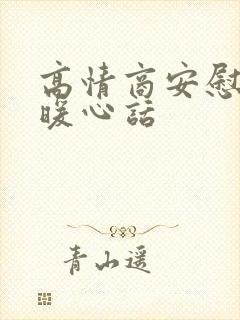 高情商安慰
暖心話
青山遥